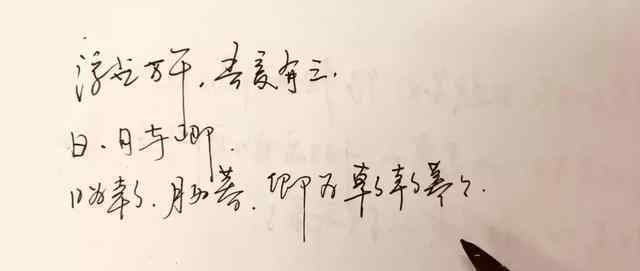 浮世万千,吾爱有三.
日、月与卿.
日为朝、月为暮、卿为朝朝暮々.